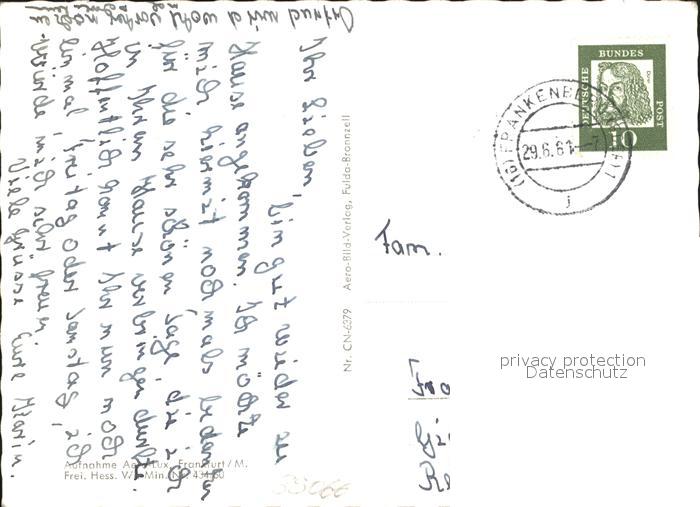 Ihr Lieben,
bin gut wieder zu
Hause angekommen. Ich möchte
mich hiermit nochmals bedanken
für die sehr schönen Tage, die ich
in Ihrem Hause verbringen durfte.
Hoffentlich kommt Ihr nun noch
einmal, Freitag oder Samstag, ich
würde mich sehr freuen.
Viele Grüsse Eure Maria.
Ortrud wird wohl
Nr. CN-6379 Aero-Bild-Verlag, Fulda-Bronnzell
Aufnahme Aero-Lux, Frankfurt/M.
Frei. Hess. W. Min. Nr. 434/60
DEUTSCHE
BUNDES
POST
Dürer
10
(16) FRANKENBE
29.6.61
7
j
Fam.
privacy protection
Datenschutz